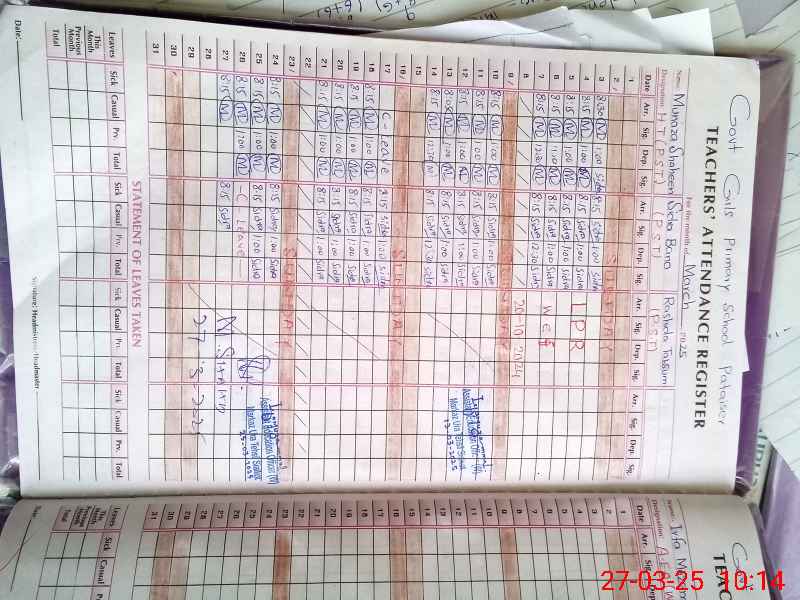 Govt Girls Primary School Pataiser
TEACHERS' ATTENDANCE REGISTER
For the month of March 2025
Name: Munaza Shaheen Sidra Bano Rashda Tabsum
Designation: H T (PST) (PST) (PST)
Date Arr. Sig. Dep. Sig. Arr. Sig. Dep. Sig. Arr. Sig. Dep. Sig. Arr. Sig. Dep. Sig.
1
2/ SUNDAY
3 8:30 M 1:00 Sidra
4 8:15 M 1:00 M 8:15 Sidra 1:00 Sidra LPR
5 8:15 M 1:00 M 8:15 Sidra 1:00 Sidra
6 8:15 M 1:00 M 8:15 Sidra 1:00 Sidra W.e.f
7 8:15 M 12:30 M 8:15 Sidra 12:30 Sidra
8 20-10-2024
9/ SUNDAY
10 8:15 M 1:00 M 8:15 Sidra 1:00 Sidra
11 8:15 M 1:00 M 8:15 Sidra 1:00 Sidra
12 8:15 M 1:00 M 8:15 Sidra 1:00 Sidra
13 M 1:00 M 8:15 Sidra 1:00 Sidra
14 8:15 M 12:30 M 8:15 Sidra 12:30 Sidra
15
16/ SUNDAY
17 C-leave 8:15 Sidra 1:00 Sidra
18 8:15 M 1:00 M 8:15 Sidra 1:00 Sidra
19 8:15 M 1:00 M 8:15 Sidra 1:00 Sidra
20 8:15 M 1:00 M 8:15 Sidra 1:00 Sidra
21 8:15 M 1:00 M 8:15 Sidra 1:00 Sidra
22
23/ SUNDAY
24 8:15 M 1:00 M 8:15 Sidra 1:00 Sidra
25 8:15 M 1:00 8:15 Sidra 1:00 Sidra
26 8:15 M 1:00 M -C-Leave-
27 8:15 M 8:15 Sidra
28
29
30
31
27-3-2025
Markaz Tehsil
13-03-2025
Assistant Education Officer (W)
Markaz Tehsil
25-03-2025
STATEMENT OF LEAVES TAKEN
Leaves Sick Casual Prv. Total Sick Casual Prv. Total Sick Casual Prv. Total Sick Casual Prv. Total
This Month
Previous Month
Total
Date:
Signature: Headmistress / Headmaster
TEAC
Name: Irfa
Designation: A.E.O
Date Arr.
1
2
3
4
5
6
7
8
9
10
11
12
13
14
15
16
17
18
19
20
21
22
23
24
25
26
27
28
29
30
31
Leaves Sick Casual
This Month
Previous Month
Total
27-03-25 10:14